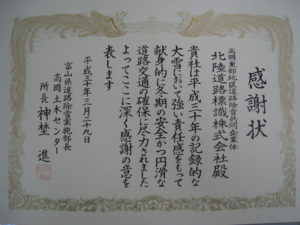 感謝状
高岡東部地区道路除雪共同企業体
北陸道路標識株式会社殿
貴社は平成三十年の記録的な
大雪において強い責任感をもって
献身的に冬期の安全かつ円滑な
道路交通の確保に尽力されました
よってここに深く感謝の意を
表します
平成三十年三月二十九日
富山県道路除雪実施部長
高岡土木センター
所長 神埜 進